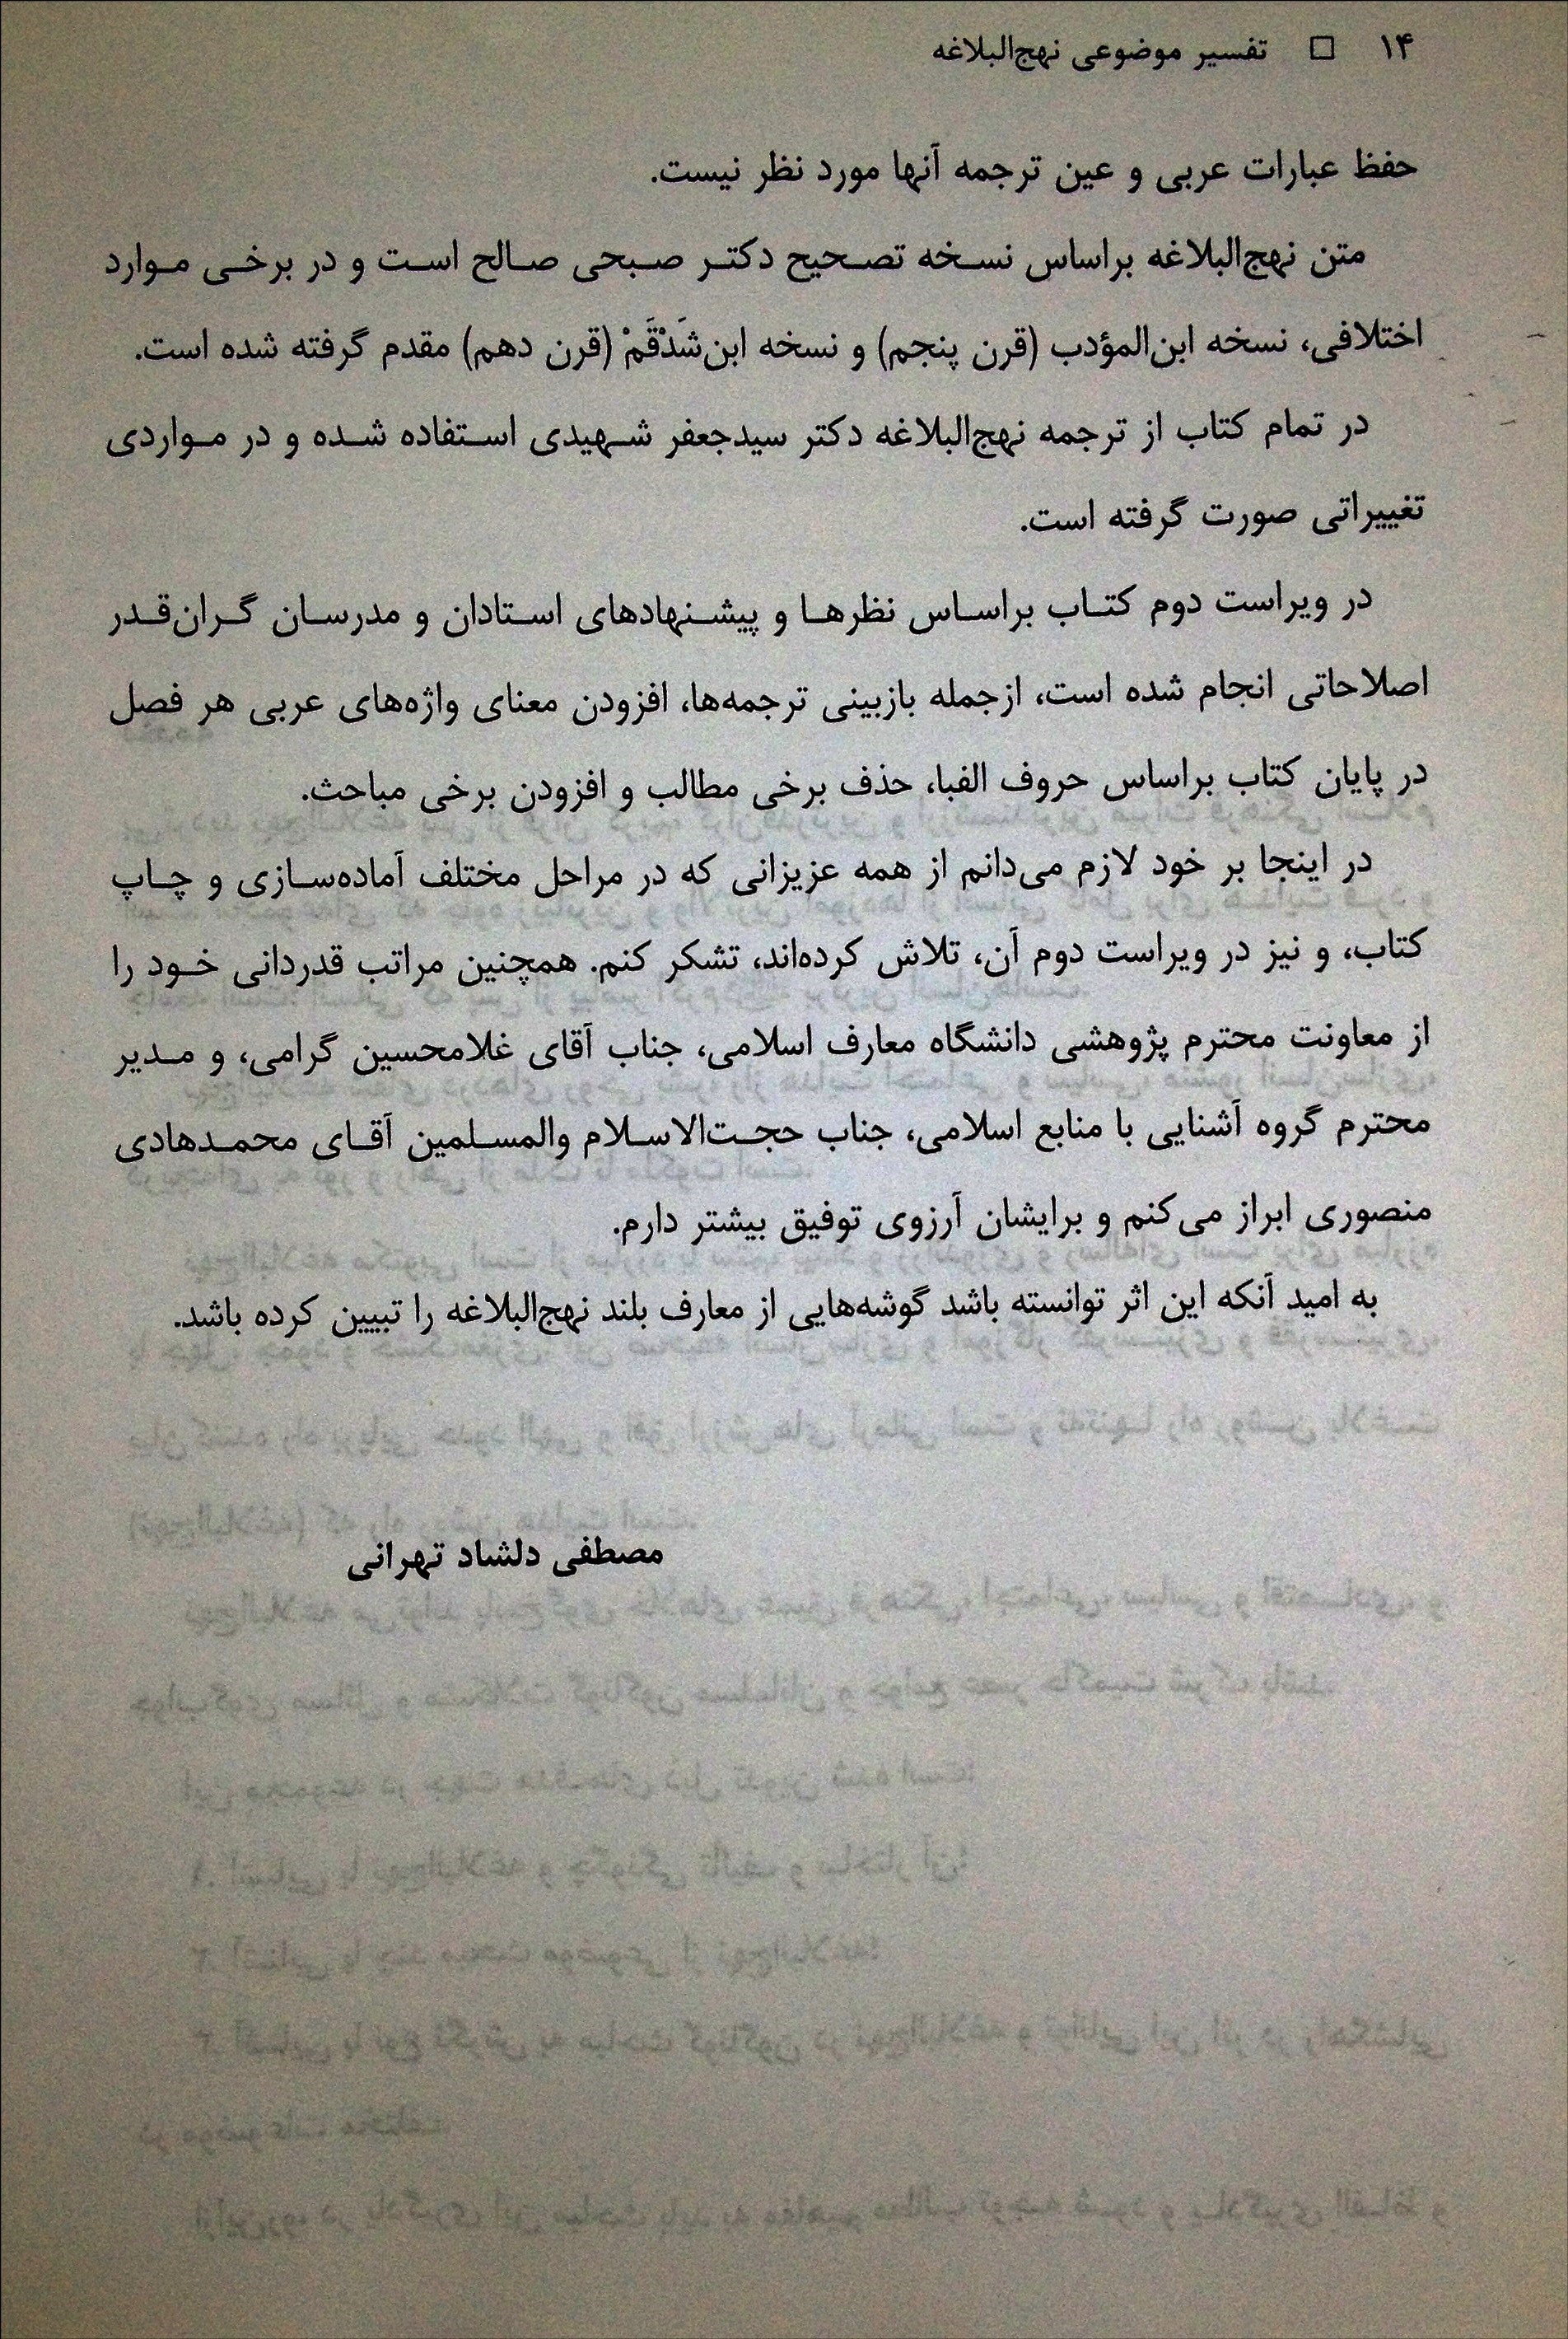 ۱۴ □ تفسیر موضوعی نهج‌البلاغه
حفظ عبارات عربی و عین ترجمه آنها مورد نظر نیست.
متن نهج‌البلاغه براساس نسخه تصحیح دکتر صبحی صالح است و در برخی موارد
اختلافی، نسخه ابن‌المؤدب (قرن پنجم) و نسخه ابن‌شَدْقَمْ (قرن دهم) مقدم گرفته شده است.
در تمام کتاب از ترجمه نهج‌البلاغه دکتر سیدجعفر شهیدی استفاده شده و در مواردی
تغییراتی صورت گرفته است.
در ویراست دوم کتاب براساس نظرها و پیشنهادهای استادان و مدرسان گران‌قدر
اصلاحاتی انجام شده است، ازجمله بازبینی ترجمه‌ها، افزودن معنای واژه‌های عربی هر فصل
در پایان کتاب براساس حروف الفبا، حذف برخی مطالب و افزودن برخی مباحث.
در اینجا بر خود لازم می‌دانم از همه عزیزانی که در مراحل مختلف آماده‌سازی و چاپ
کتاب، و نیز در ویراست دوم آن، تلاش کرده‌اند، تشکر کنم. همچنین مراتب قدردانی خود را
از معاونت محترم پژوهشی دانشگاه معارف اسلامی، جناب آقای غلامحسین گرامی، و مدیر
محترم گروه آشنایی با منابع اسلامی، جناب حجت‌الاسلام والمسلمین آقای محمدهادی
منصوری ابراز می‌کنم و برایشان آرزوی توفیق بیشتر دارم.
به امید آنکه این اثر توانسته باشد گوشه‌هایی از معارف بلند نهج‌البلاغه را تبیین کرده باشد.
مصطفی دلشاد تهرانی